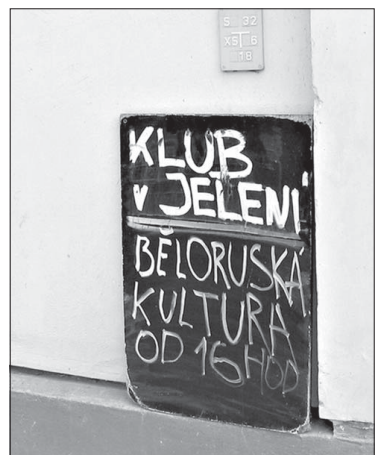 S 32
XS 6
18
KLUB
v JELENÍ
BĚLORUSKÁ
KULTURA
OD 16 HOD